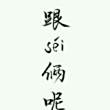 跟
séi
俩
呢